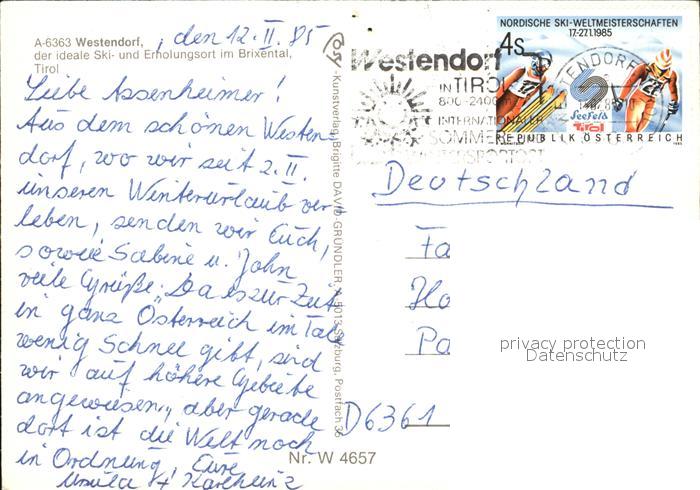 A-6363 Westendorf, , den 12.II.85
der ideale Ski- und Erholungsort im Brixental,
Tirol
Liebe Assenheimer!
Aus dem schönen Westen-
dorf, wo wir seit 2.II.
unseren Winterurlaub ver-
leben, senden wir Euch,
sowie Sabine u. John
viele Grüße. Da es zur Zeit
in ganz Österreich im Tal
wenig Schnee gibt, sind
wir auf höhere Gebiete
angewiesen, aber gerade
dort ist die Welt noch
in Ordnung, Eure
Ursula + Karlheinz
Kunstverlag Brigitte DAVID-GRÜNDLER, A-5013 Salzburg, Postfach 36
Nr. W 4657
Westendorf
IN TIROL
800-2400
INTERNATIONALER
SOMMER
WINTERSPORTORT
WESTENDORF
NORDISCHE SKI-WELTMEISTERSCHAFTEN
17-27.1.1985
4s
Seefeld
Tirol
REPUBLIK ÖSTERREICH
1985
Deutschland
Fa
Ho
Pa
D6361
privacy protection
Datenschutz